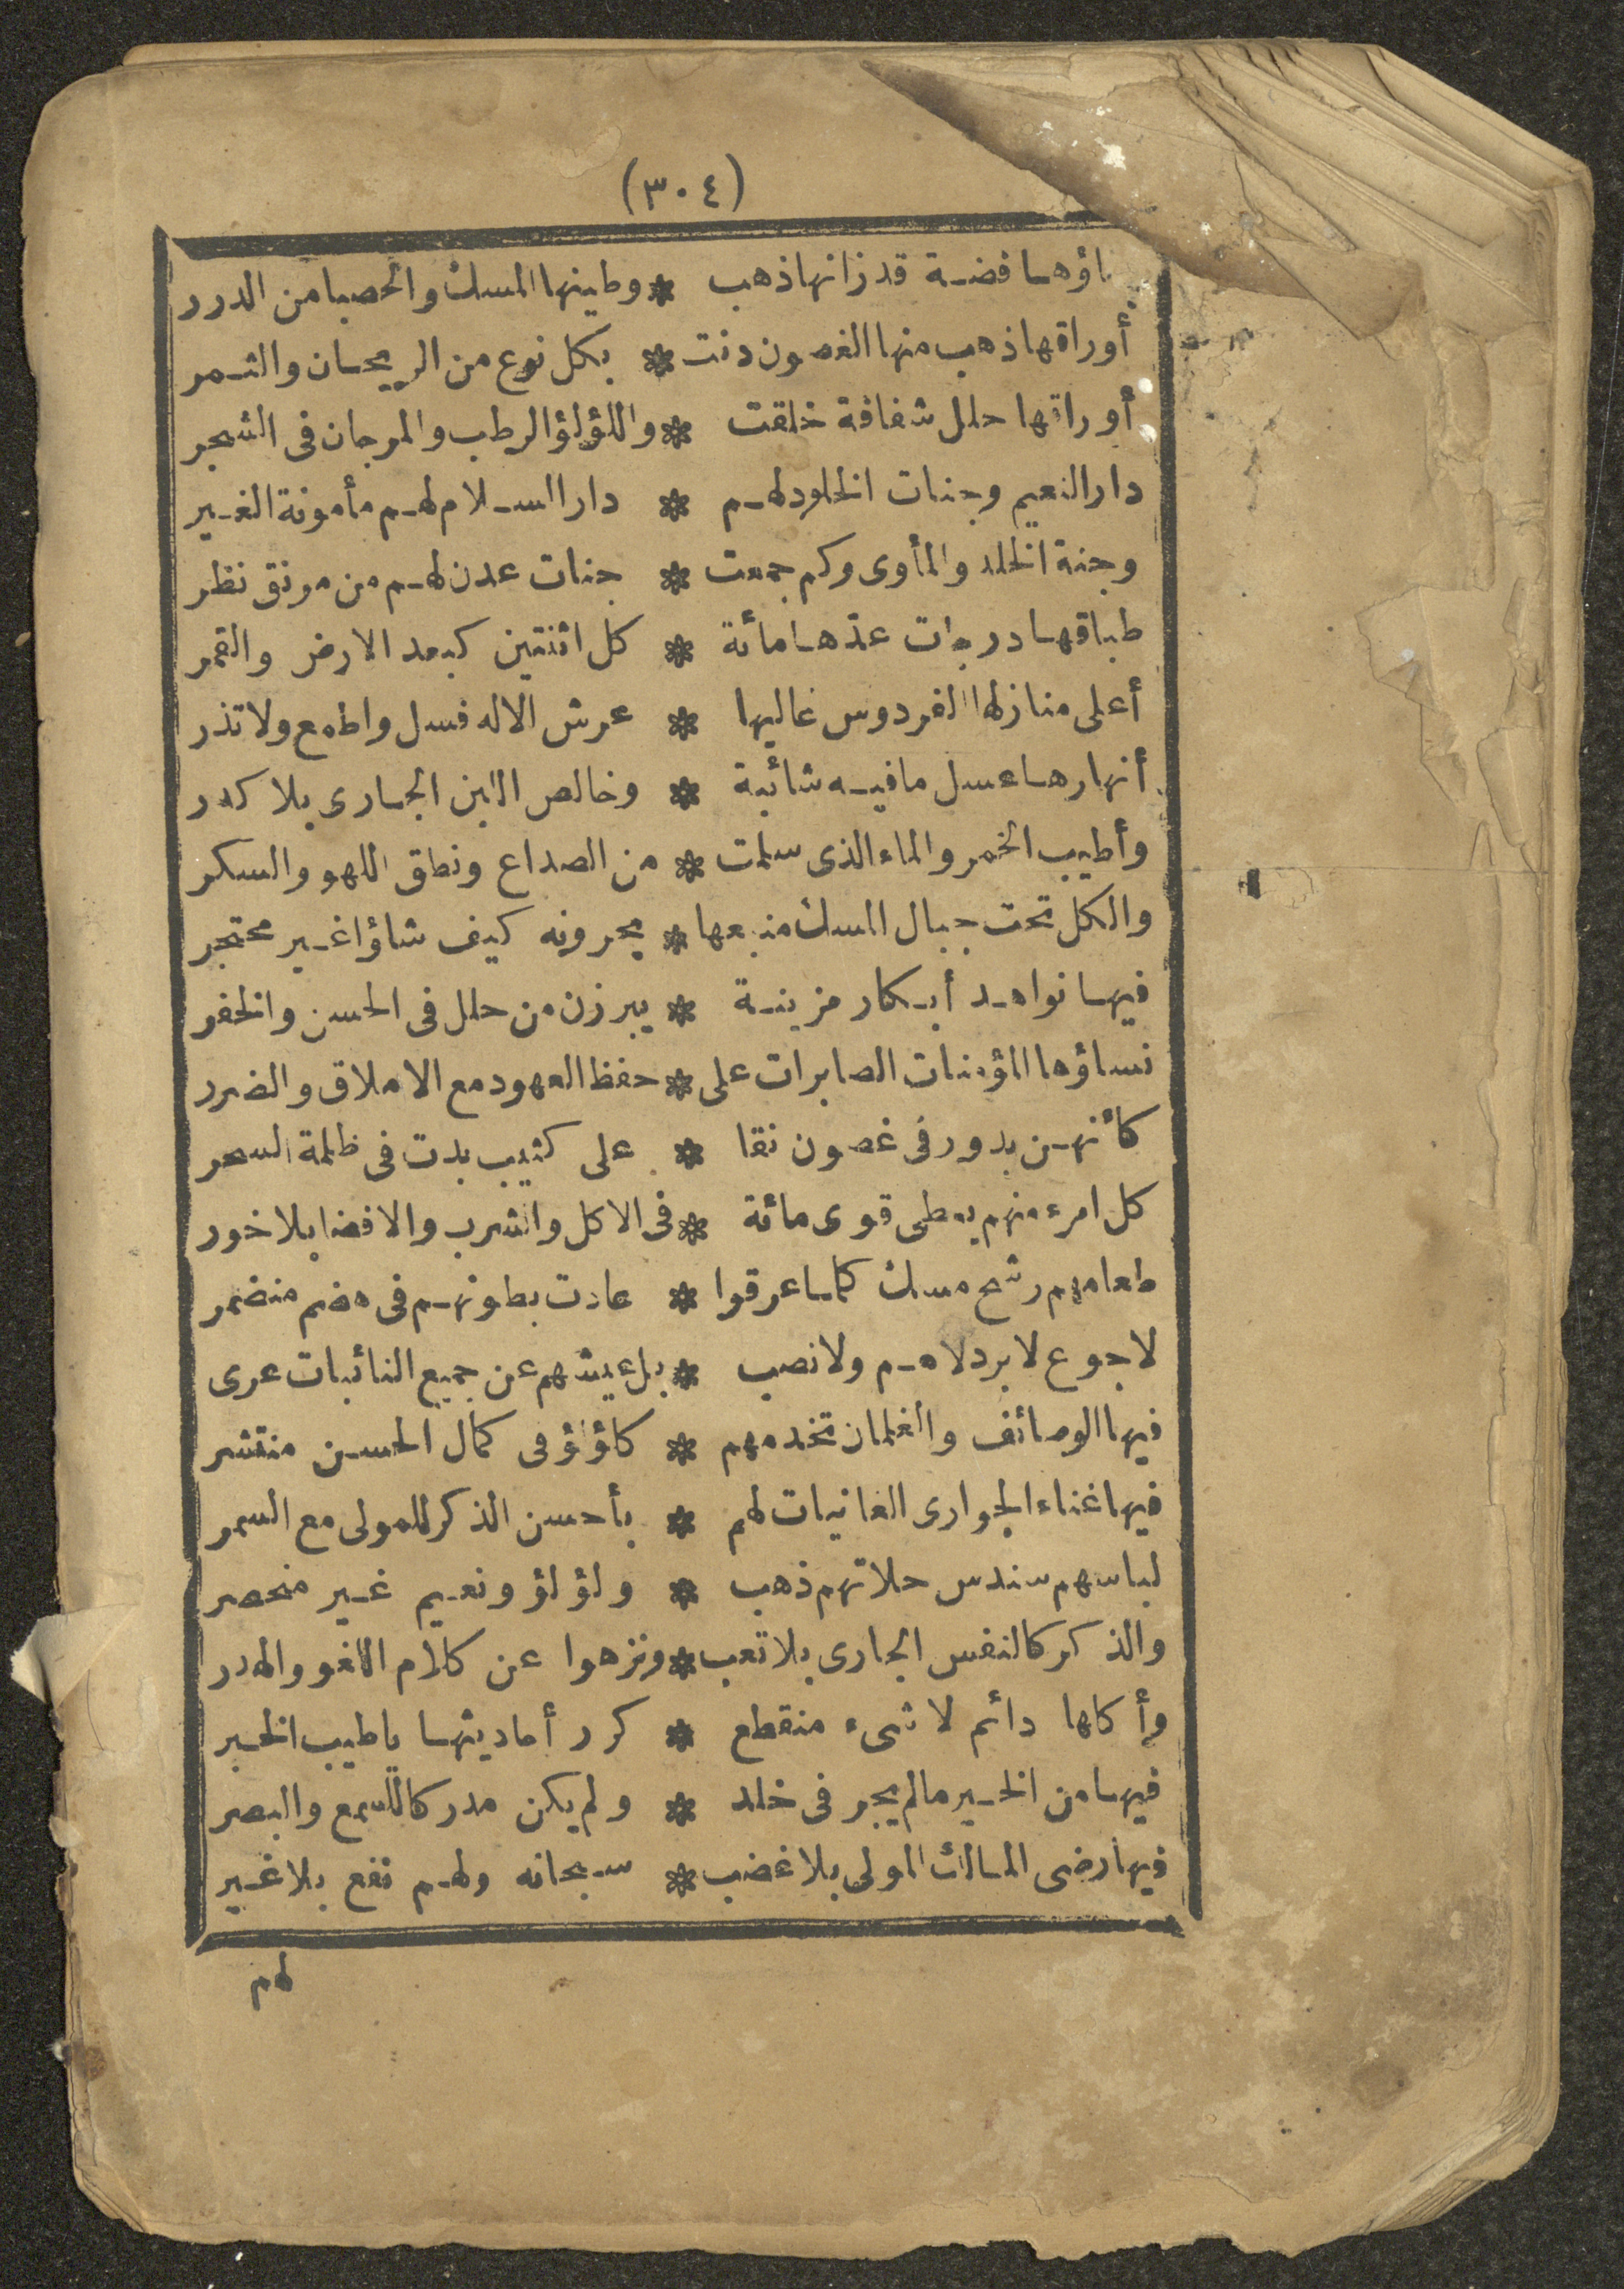 (٣٠٤)
اؤها فضة قد زانها ذهب * وطينها المسك والحصبا من الدرر
أوراقها ذهب منها الغصون دنت * بكل نوع من الريحان والثمر
أوراتها حلل شفافة خلقت * واللؤلؤ الرطب والمرجان فى الشجر
دار النعيم وجنات الخلود لهم * دار السلام لهم مأمونة الغير
وجنة الخلد والمأوى وكم جمعت * جنات عدن لهم من مونق نظر
طباقها درجات عدّها مائة * كل اثنتين كبعد الارض والقمر
أعلى منازلها الفردوس غاليها * عرش الاله فسل واطمع ولا تذر
أنهارها عسل مافيه شائبة * وخالص اللبن الجارى بلا كدر
وأطيب الخمر والماء الذى سلمت * من الصداع ونطق اللهو والسكر
والكل تحت جبال المسك منبعها * يجرونه كيف شاؤا غير محتجر
فيها نواهد أبكار مزينة * يبرزن من حلل فى الحسن والخفر
نساؤها المؤمنات الصابرات على * حفظ العهود مع الاملاق والضرر
كأنهن بدور فى غصون نقا * على كثيب بدت فى ظلمة السحر
كل امرء منهم يعطى قوى مائة * فى الاكل والشرب والافضا بلا خور
طعامهم رشح مسك كلما عرقوا * عادت بطونهم فى هضم منضمر
لا جوع لا برد لا هم ولا نصب * بل عيشهم عن جميع النائبات عرى
فيها الوصائف والغلمان تخدمهم * كلؤلؤ فى كمال الحسن منتشر
فيها غناء الجوارى الغانيات لهم * بأحسن الذكر للمولى مع السمر
لباسهم سندس حلاتهم ذهب * ولؤلؤ ونعيم غير منحصر
والذكر كالنفس الجارى بلا تعب * ونزهوا عن كلام اللغو والهدر
وأكلها دائم لا شىء منقطع * كرر أحاديثها يا طيب الخبر
فيها من الخير مالم يجر فى خلد * ولم يكن مدركا للسمع والبصر
فيها رضى المالك المولى بلا غضب * سبحانه ولهم نفع بلا غير
لهم